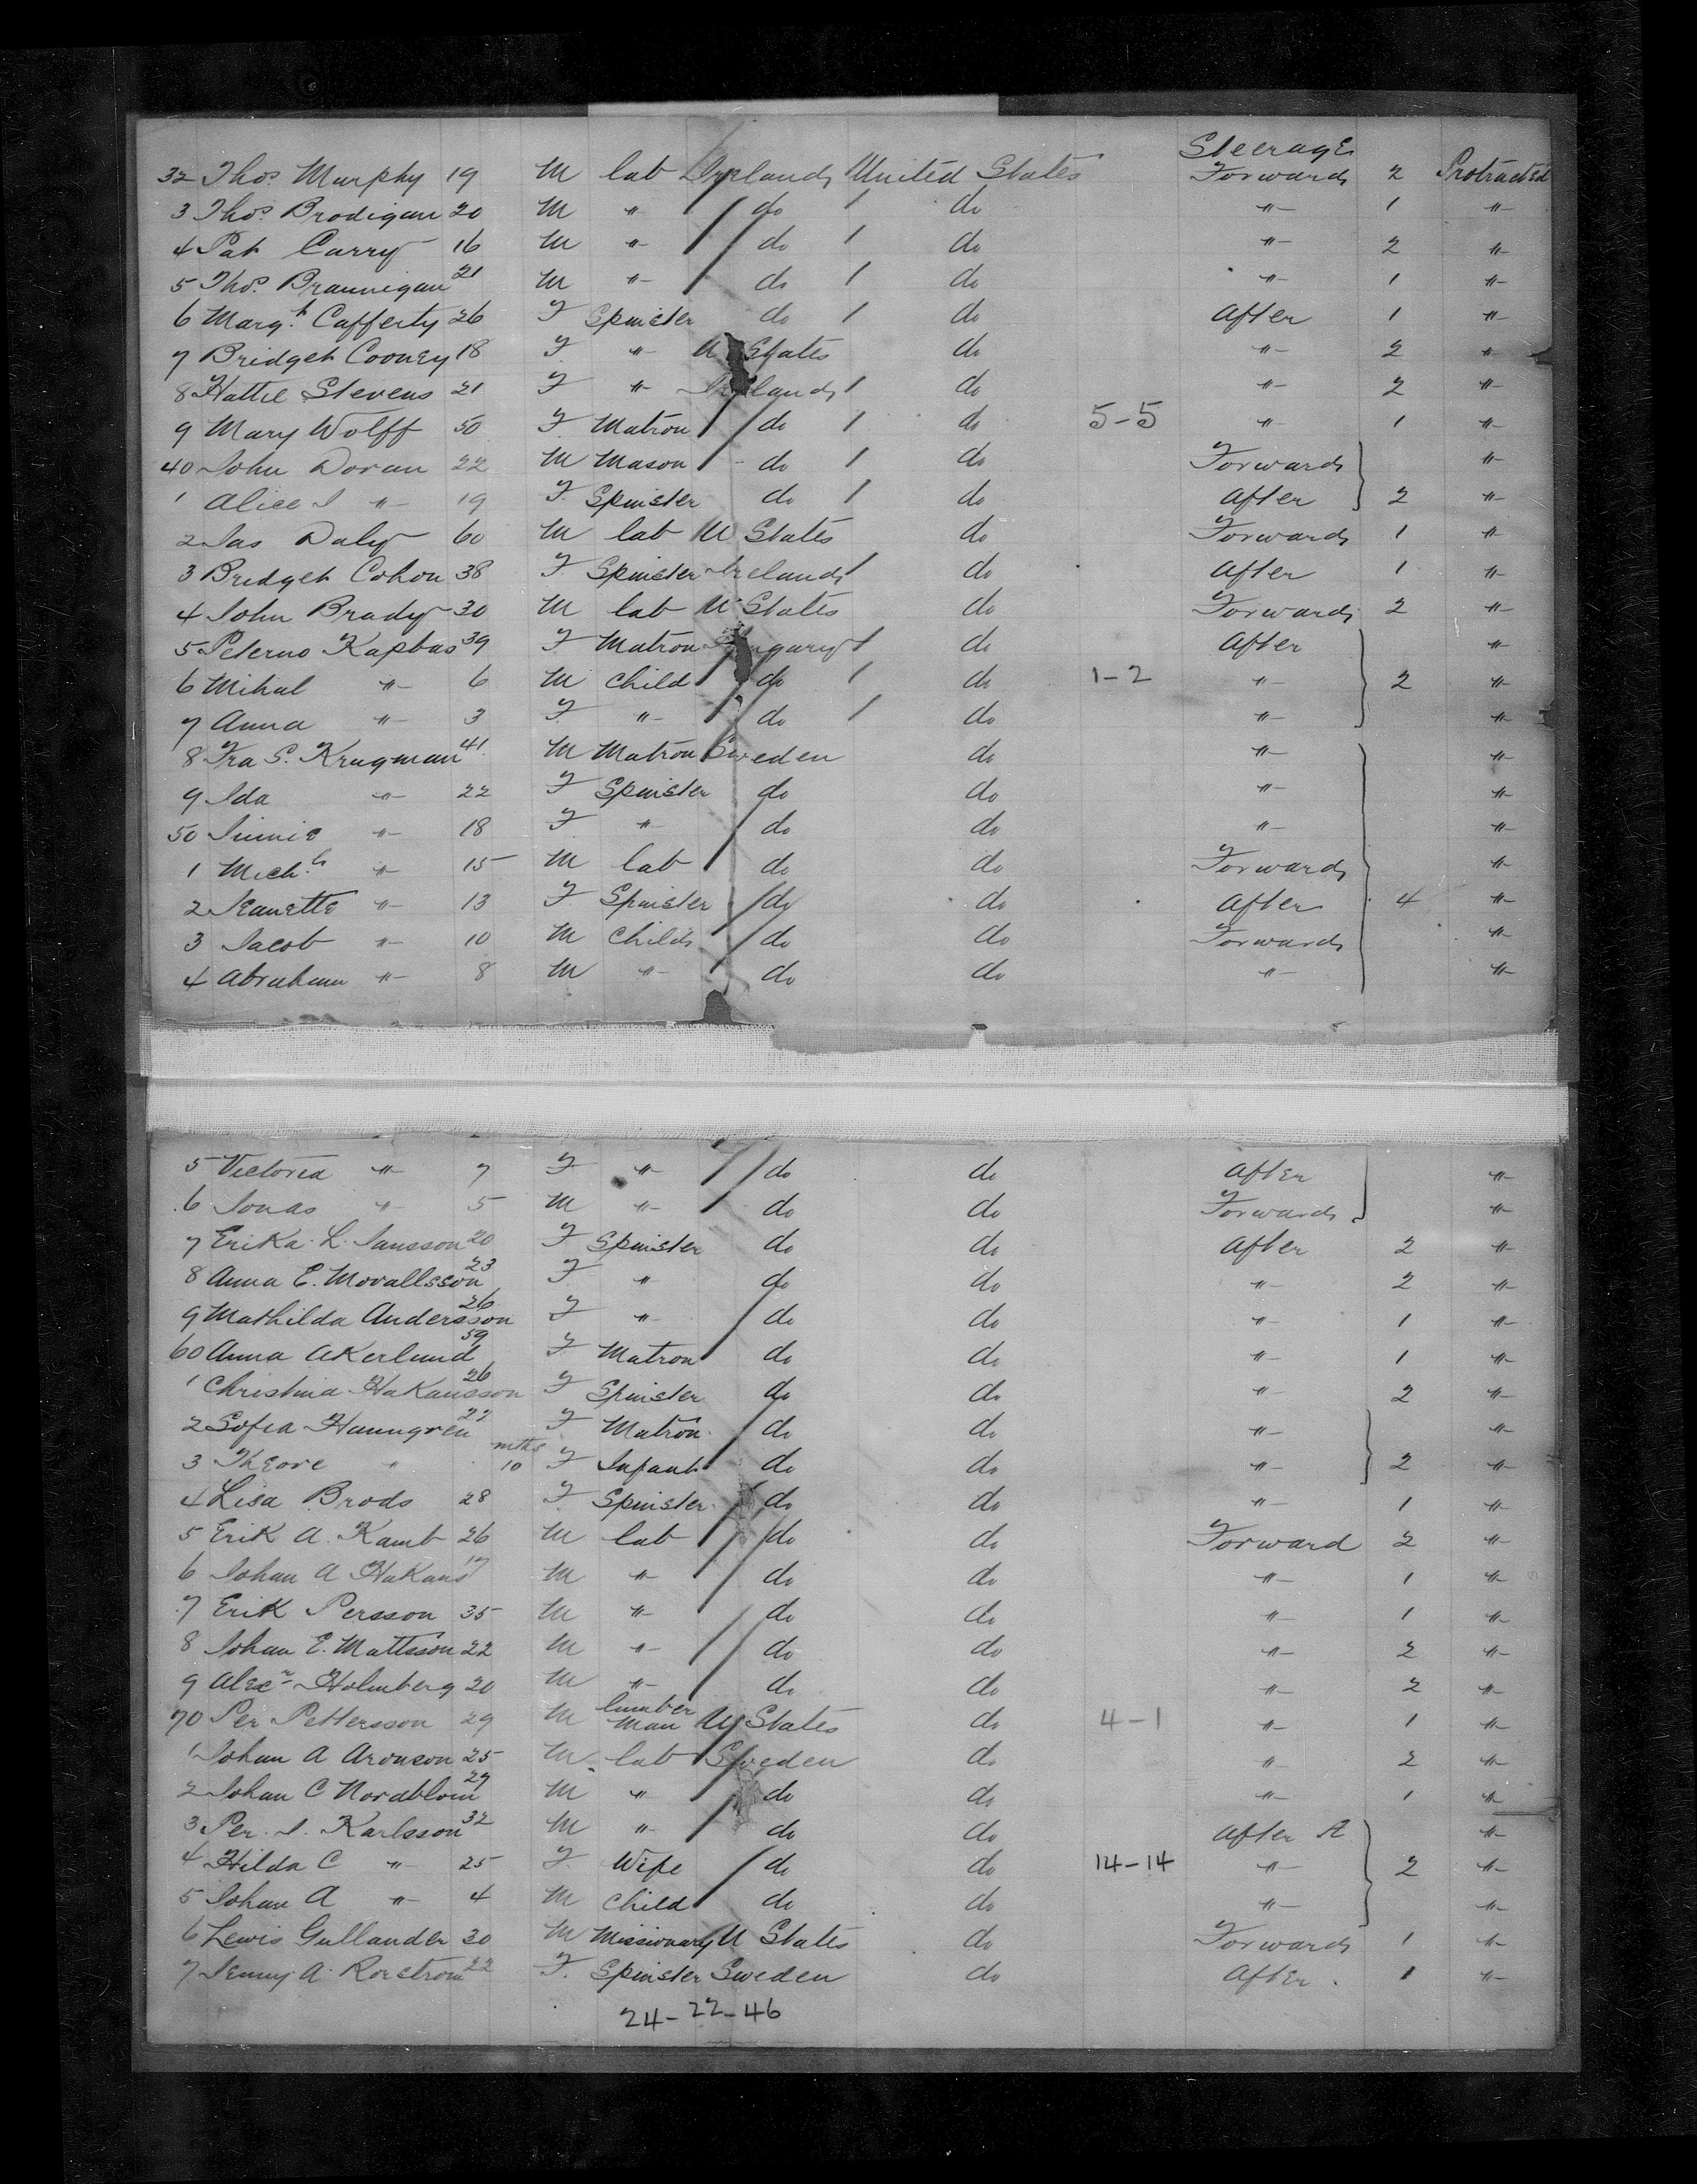 Steerage
32 Thos. Murphy 19 M lab Ireland United States Forward 2 Protracted
3 Thos. Brodigan 20 M " do do " 1 "
4 Pat Carry 16 M " do do " 2 "
5 Thos. Brannigan 21 M " do do " 1 "
6 Margt. Cafferty 26 F Spinster do do After 1 "
7 Bridget Cooney 18 F " U States do " 2 "
8 Hattie Stevens 21 F " Ireland do " 2 "
9 Mary Wolff 50 F Matron do do 5-5 " 1 "
40 John Doran 22 M Mason do do Forward "
1 Alice J " 19 F Spinster do do After 2 "
2 Jas Daly 60 M lab U States do Forward 1 "
3 Bridget Cohon 38 F Spinster Ireland do After 1 "
4 John Brady 30 M lab U States do Forward 2 "
5 Peterno Kapbas 39 F Matron Hungary do After "
6 Mihal " 6 M Child do do 1-2 " 2 "
7 Anna " 3 F " do do " "
8 Fra S. Krugman 41 M Matron Sweden do " "
9 Ida " 22 F Spinster do do " "
50 " 18 F " do do " "
1 Michl. " 15 M lab do do Forward "
2 Jeanette " 13 F Spinster do do After 4 "
3 Jacob " 10 M Child do do Forward "
4 Abraham " 8 M " do do " "
5 Victoria " 7 F " do do After "
6 Jonas " 5 M " do do Forward "
7 Erika L. Jansson 20 F Spinster do do After 2 "
8 Anna E. Movallsson 23 F " do do " 2 "
9 Mathilda Andersson 26 F " do do " 1 "
60 Anna Akerlund 59 F Matron do do " 1 "
1 Christina Hakansson 26 F Spinster do do " 2 "
2 Sofia Hanngren 22 F Matron do do " "
3 Theore " 10 mths F Infant do do " 2 "
4 Lisa Brods 28 F Spinster do do " 1 "
5 Erik A. Kamb 26 M lab do do Forward 2 "
6 Johan A Hakans 17 M " do do " 1 "
7 Erik Persson 35 M " do do " 1 "
8 Johan E. Mattsson 22 M " do do " 2 "
9 Alexr Holmberg 20 M " do do " 2 "
70 Per Pettersson 29 M lumber man U States do 4-1 " 1 "
1 Johan A Aronson 25 M lab Sweden do " 2 "
2 Johan C Nordblom 29 M " do do " 1 "
3 Per J. Karlsson 32 M " do do After A "
4 Hilda C " 25 F Wife do do 14-14 " 2 "
5 Johan A " 4 M Child do do " "
6 Lewis Gullander 30 M Missionary U States do Forward 1 "
7 Jenny A. Rorstrom 22 F. Spinster Sweden do After 1 "
24-22-46